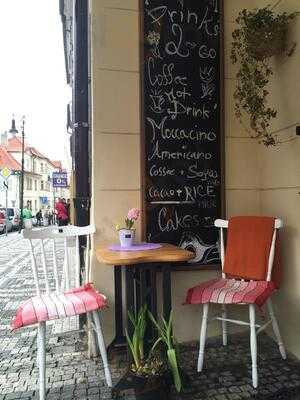 Drink's
2-GO
Coffee
Hot
Drink's
Moccacino
Americano
Coffee + Soya
Cacao + RICE
Cakes